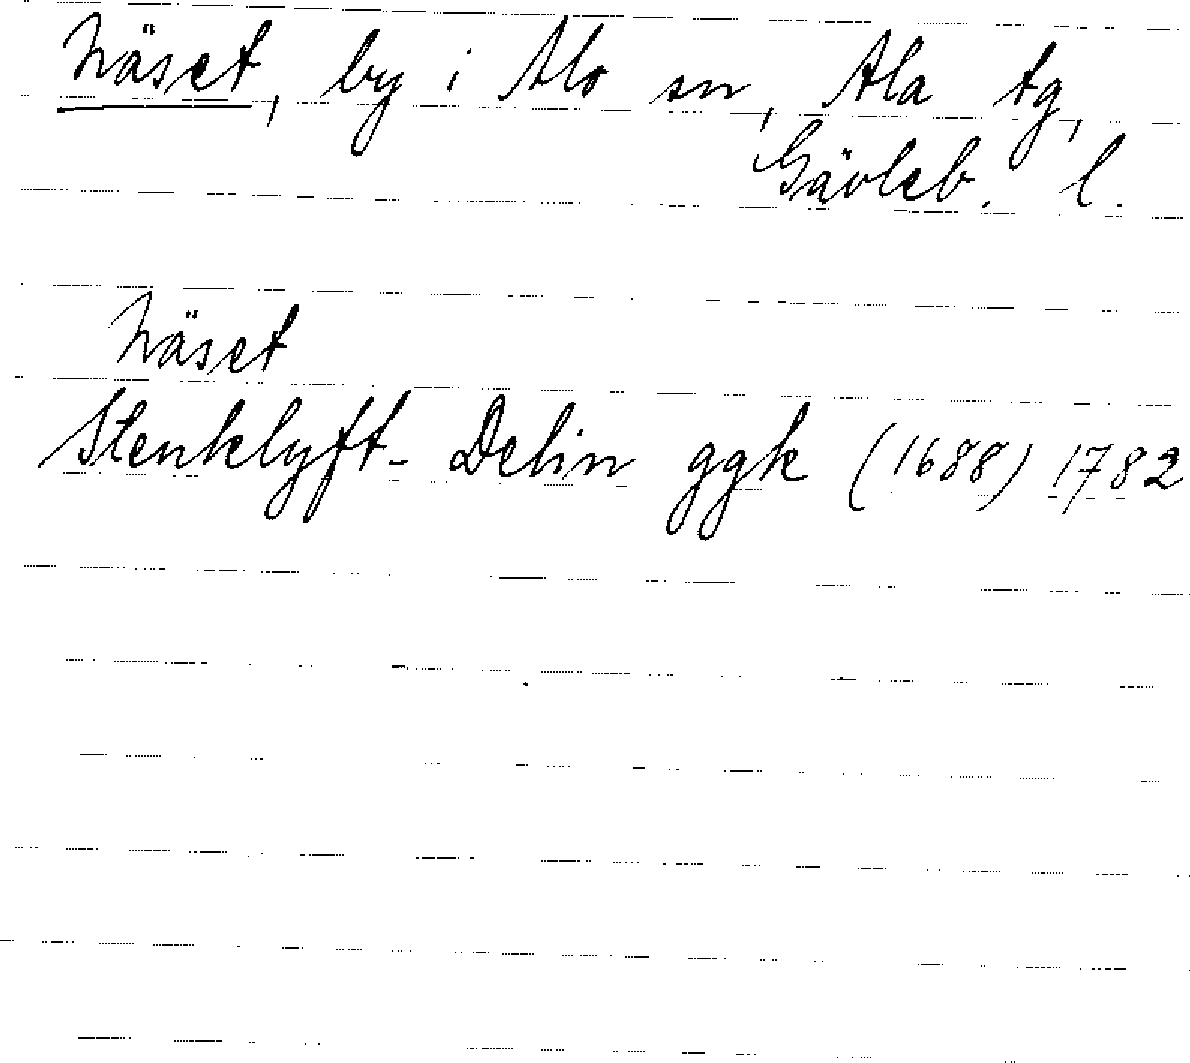 Näset, by i Alo sn, Ala tg,
Gävleb. l.
Näset
Stenklyft- Delin ggk (1688) 1782